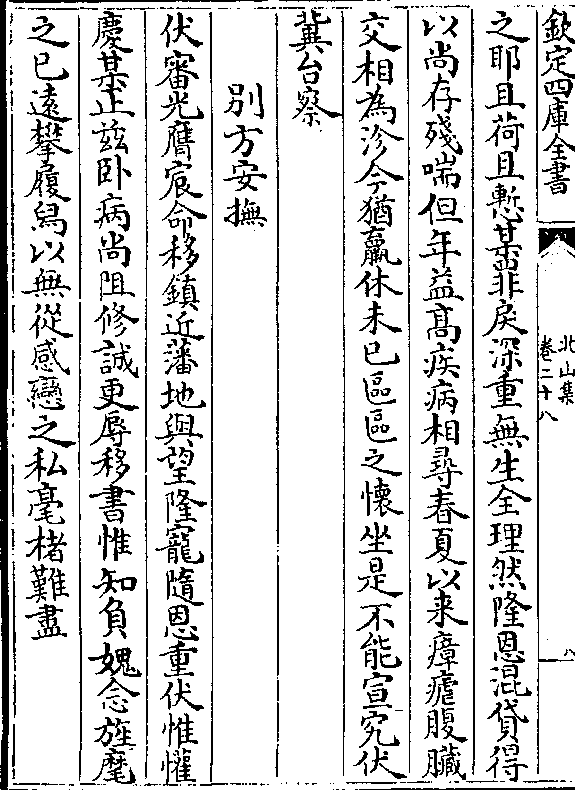 欽定四庫全書
北山集
卷二十八
八
之耶且荷且慙某罪戾深重無生全理然隆恩混貸得
以尚存殘喘但年益髙疾病相尋春夏以来瘴瘧腹臟
交相為沴今猶羸休未已區區之懷坐是不能宣究伏
冀台察
别方安撫
伏審光膺宸命移鎮近藩地與望隆寵隨恩重伏惟懽
慶某止兹卧病尚阻修誠更辱移書惟知負媿念旌麾
之已遠攀履舄以無從感戀之私毫楮難盡